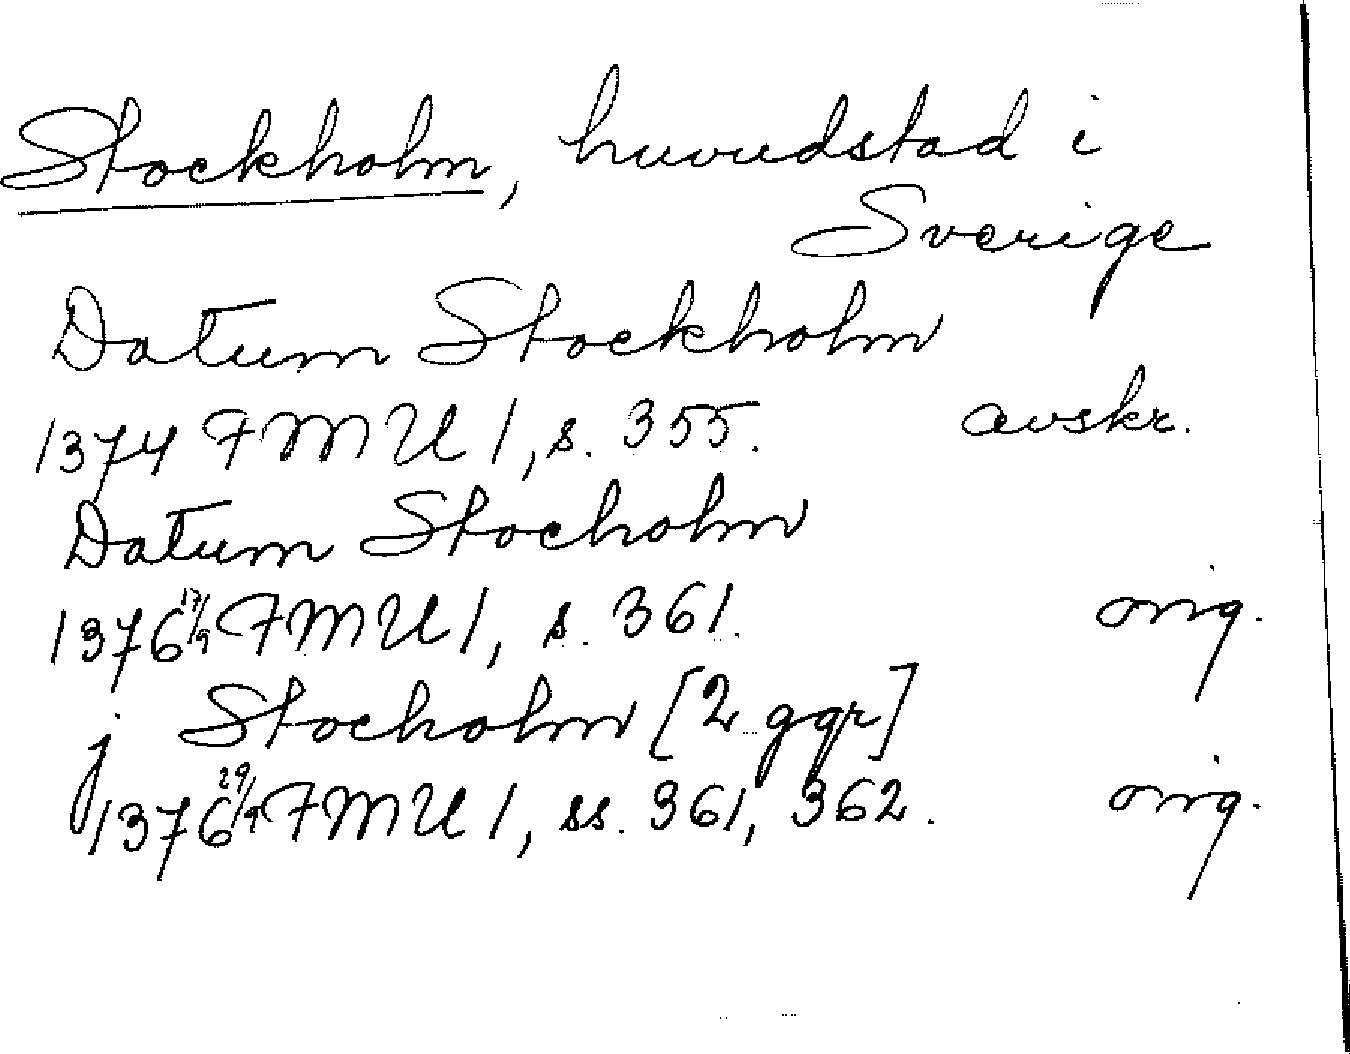 Stockholm, huvudstad i
Sverige
Datum Stockholm
1374 FMU 1, s. 355. avskr.
Datum Stocholm
1376 17/9 FMU 1, s. 361. orig.
j Stocholm [2 ggr]
1376 29/9 FMU 1, ss. 361, 362. orig.